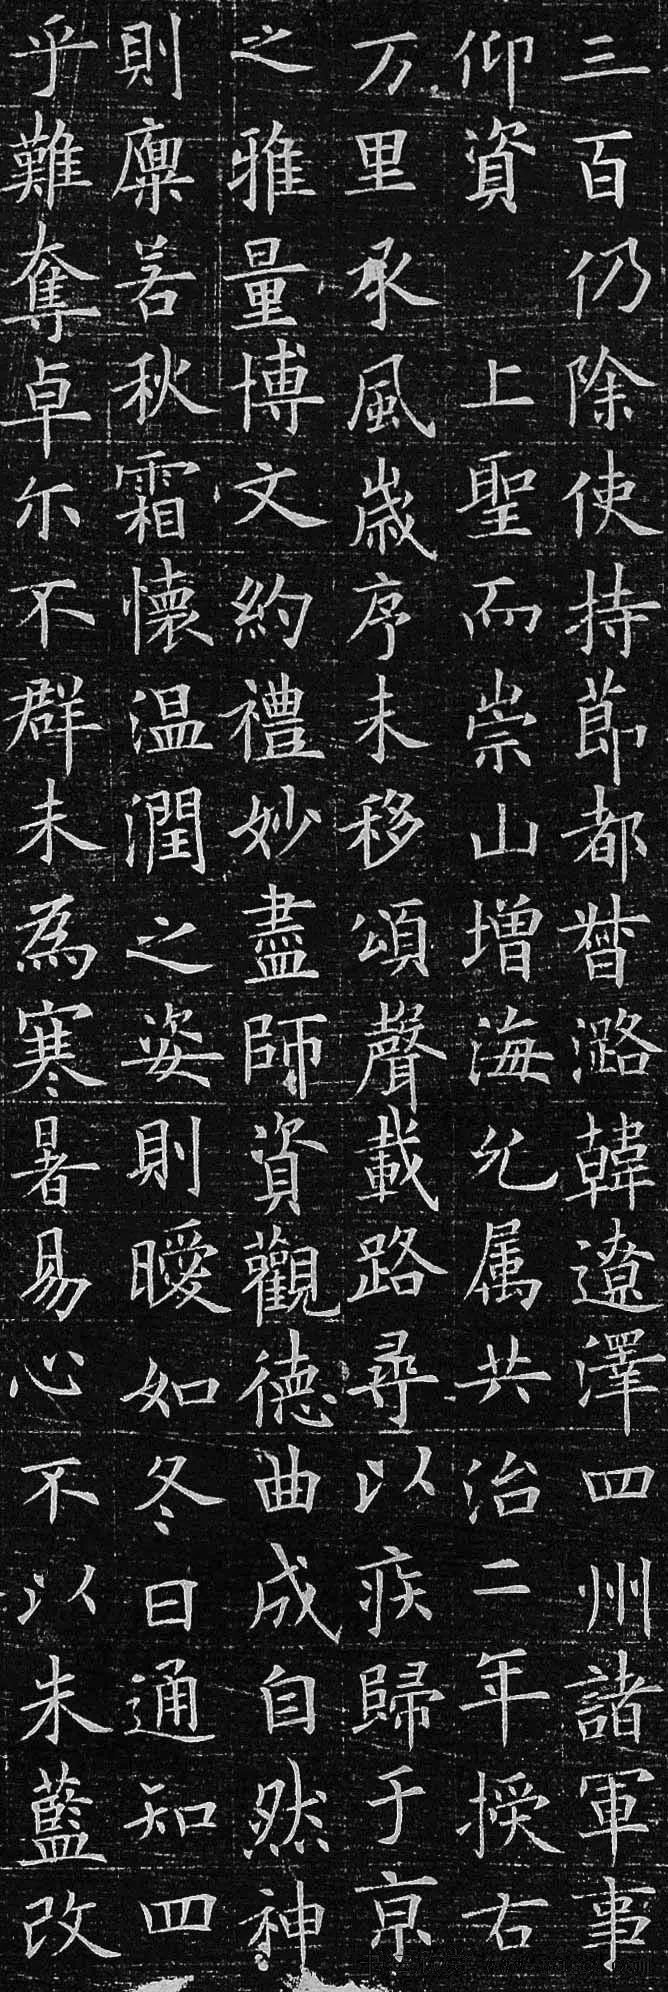 三百仍除使持節都督潞韓遼澤四州諸軍事
仰資 上聖而崇山增海允属共治二年授右
万里承風嵗序未移頌聲載路尋以疾歸于京
之雅量博文約禮妙盡師資觀德曲成自然神
則廩若秋霜懷温潤之姿則曖如冬日通知四
乎難奪卓尒不群未為寒暑易心不以朱藍改